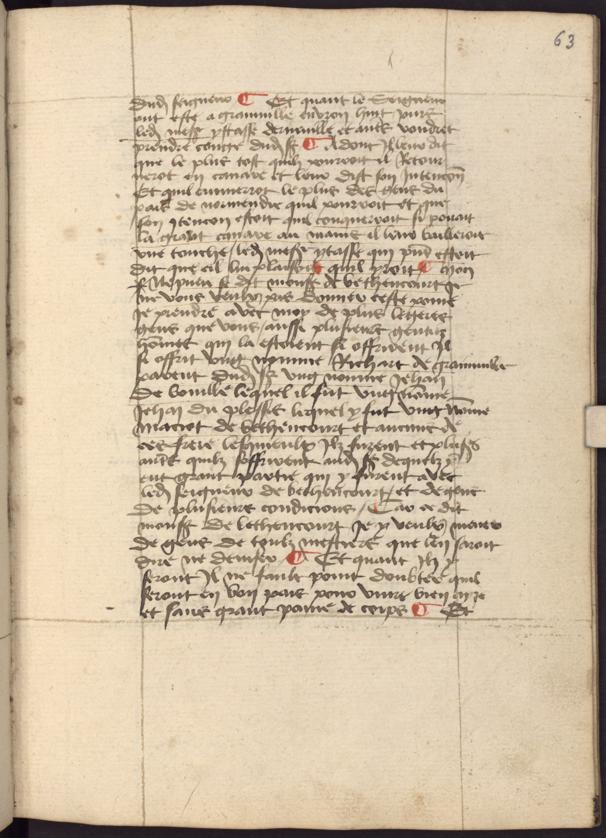 63
dud seigneur ¶ Et quant le seigneur
out este a grainville environ huit jours
led mesr ystasse derneville et aults voudret
prendre conge dud sr ¶ Adont Il leur dit
que le plus tost quil pourroit il Retour
neroit en canare et leur dist son Intencon
Et quil emmerroit le plus des gens du
pais de normendie quil pourroit et que
son Intencon estoit quil conquerroit si pouait
la grant canare au mains il leur bailleroit
une touche led mesr ystasse qui pnt estoit
dit que sil lui plaisoit quil yroit ¶ mon
nepveu se dit monsr de bethencourt je
ne vous veulx pas donner ceste paine
je prendre avec moy de plus letteres
gens que vous aussi plusieurs gentilz
hommes qui la estoient se offrirent Il
se offrit ung nomme Richart de grainville
parent dud sr ung nomme Jehan
de bouille lequel il fut ung nomme
Jehan du plessis lequel y fut ung nomme
maciot de bethencourt et aucuns de
ces frere lesquieulx Ilz furent et plussrs
aults quilz soffrirent aud sr dequelz y
eut grant partie qui y furent avec
led seigneur de bethencourt et de gens
de plusieurs condicions Car ce dit
monsr de bethencourt Je y veulx mener
de gens de toulz mestiers que len saroit
dire ne deviser ¶ Et quant Ilz y
seront Il ne fault point doubter quil
seront en bon pais pour vivre bien a se
et sans grant paine de corps ¶ Et